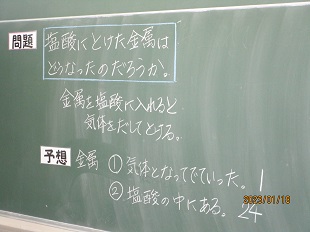 問題 塩酸にとけた金属は
どうなったのだろうか。
金属を塩酸に入れると
気体をだしてとける。
予想 金属 ① 気体となってでていった。 1
② 塩酸の中にある。 24
2023/01/18